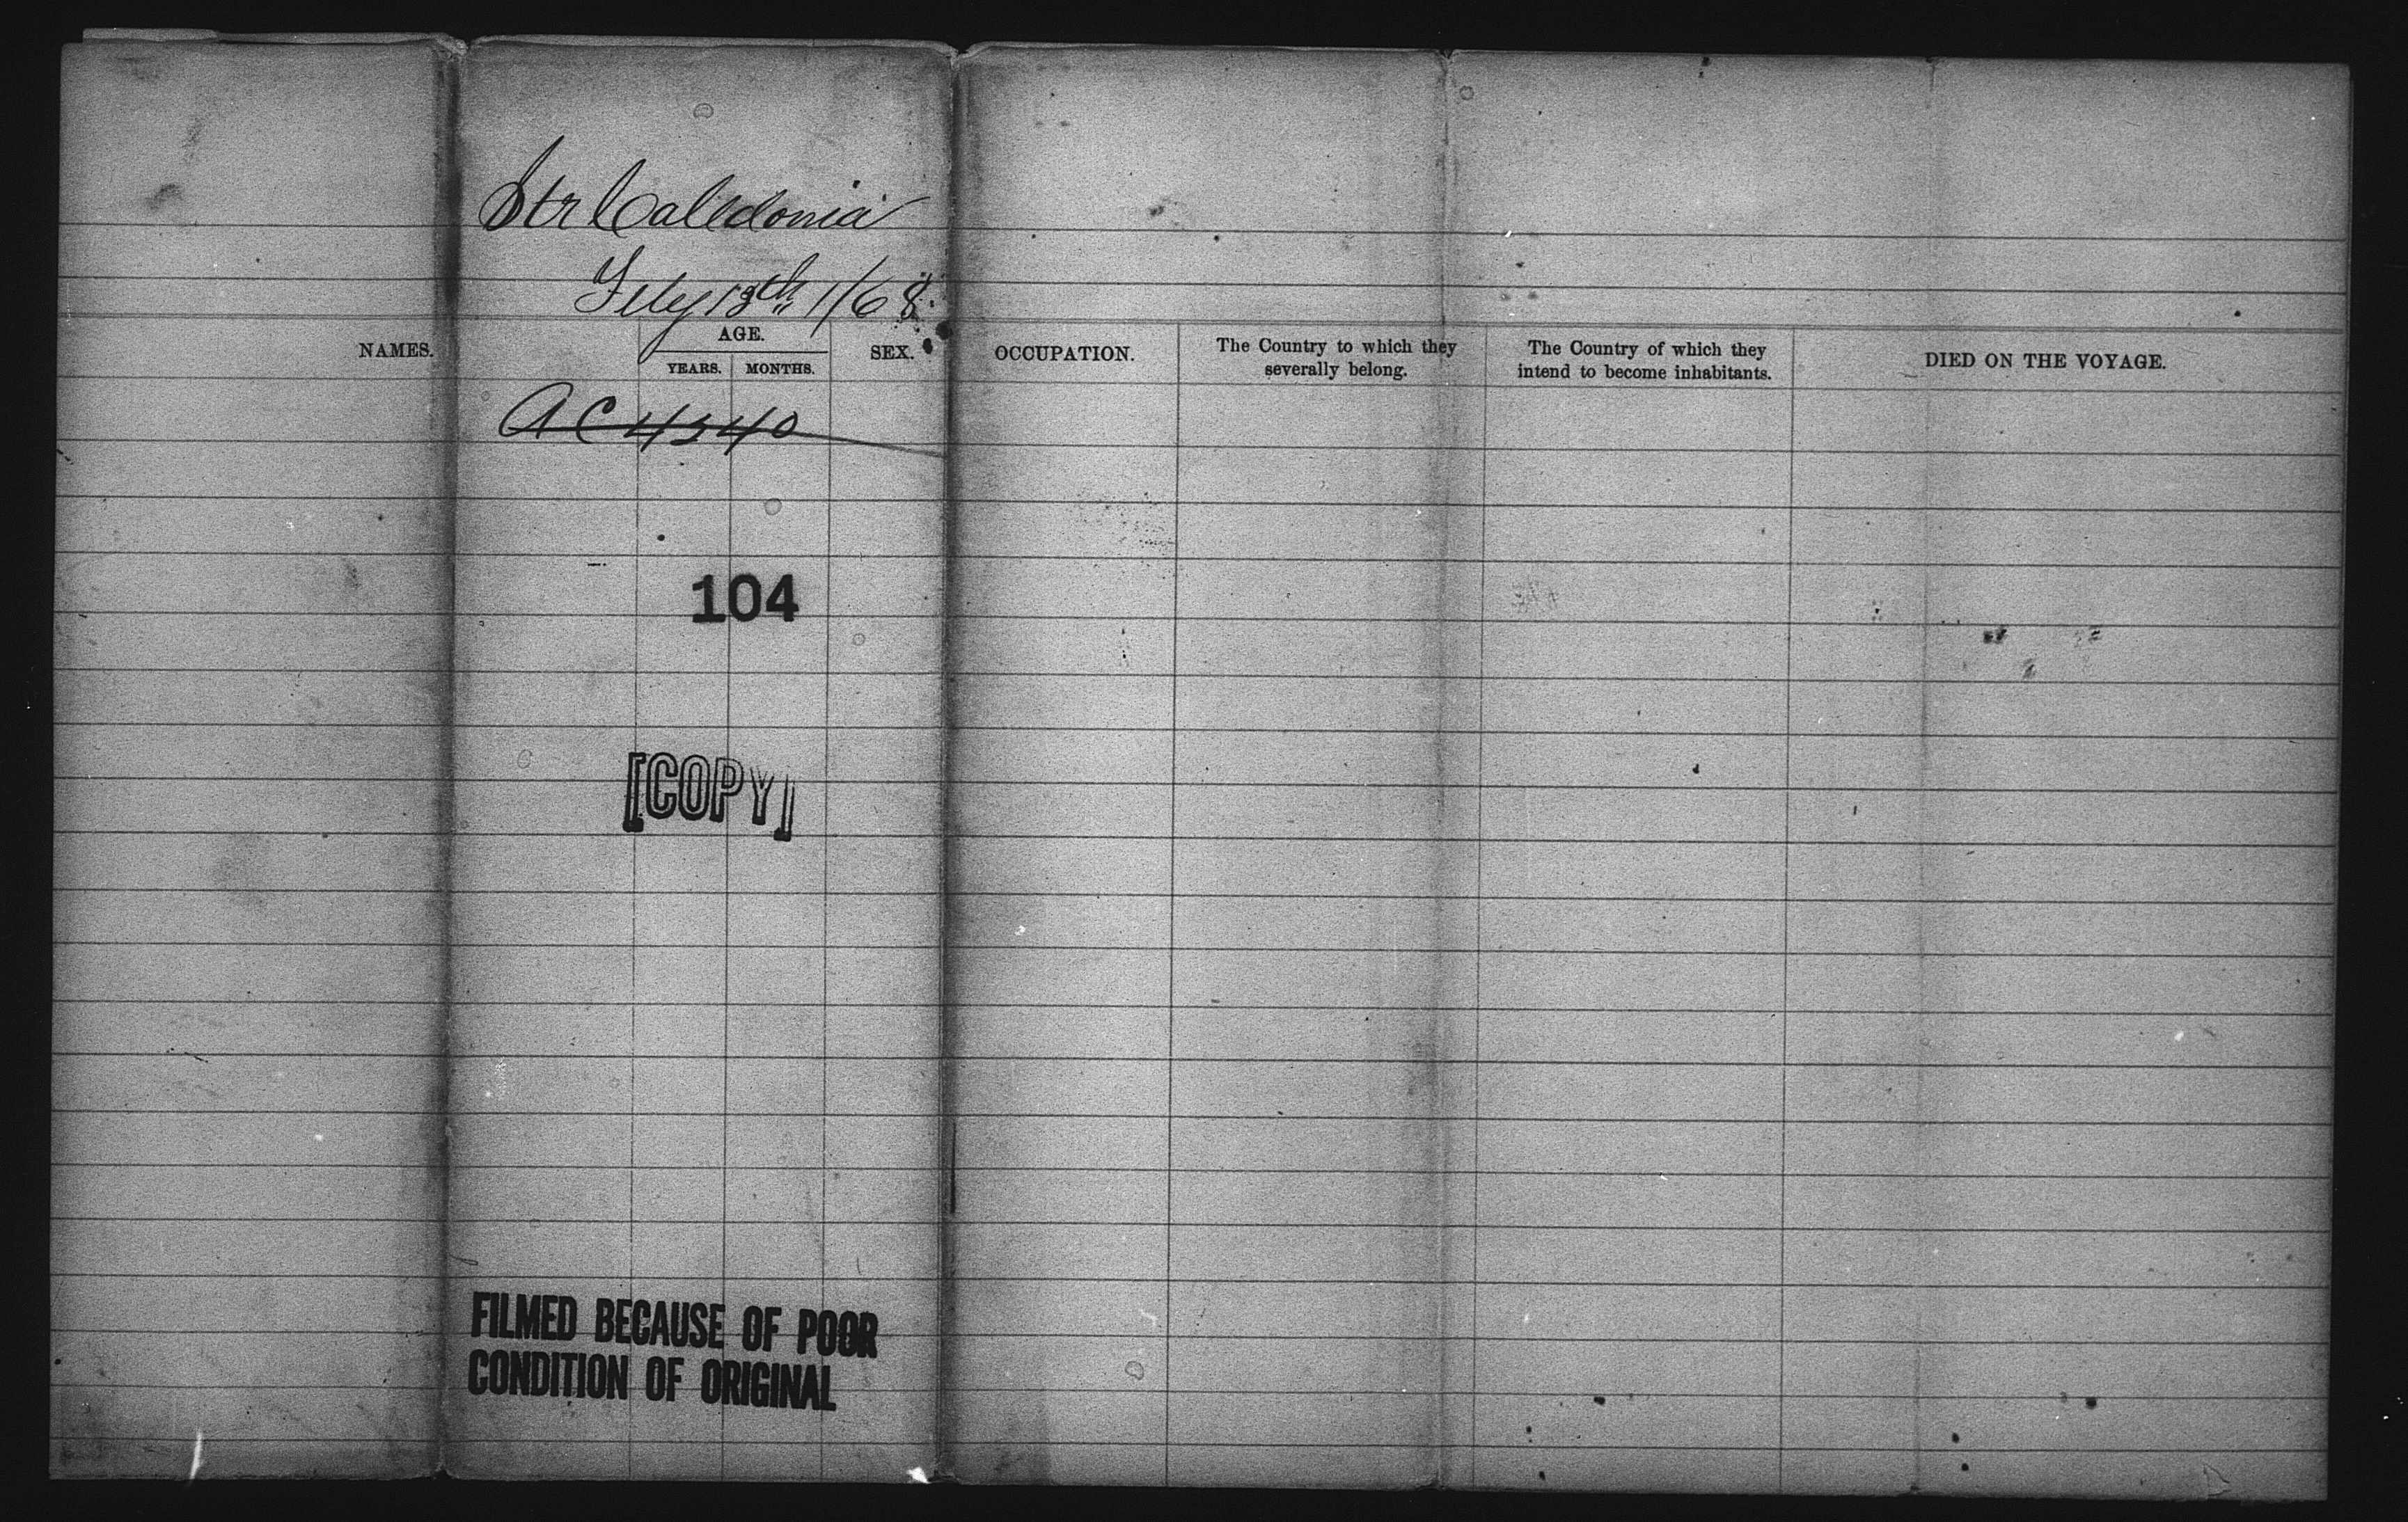 Str Caledonia
July 13th 1/68
NAMES.
AGE.
YEARS.
MONTHS.
SEX.
OCCUPATION.
The Country to which they
severally belong.
The Country of which they
intend to become inhabitants.
DIED ON THE VOYAGE.
AC 4340
104
[COPY]
FILMED BECAUSE OF POOR
CONDITION OF ORIGINAL